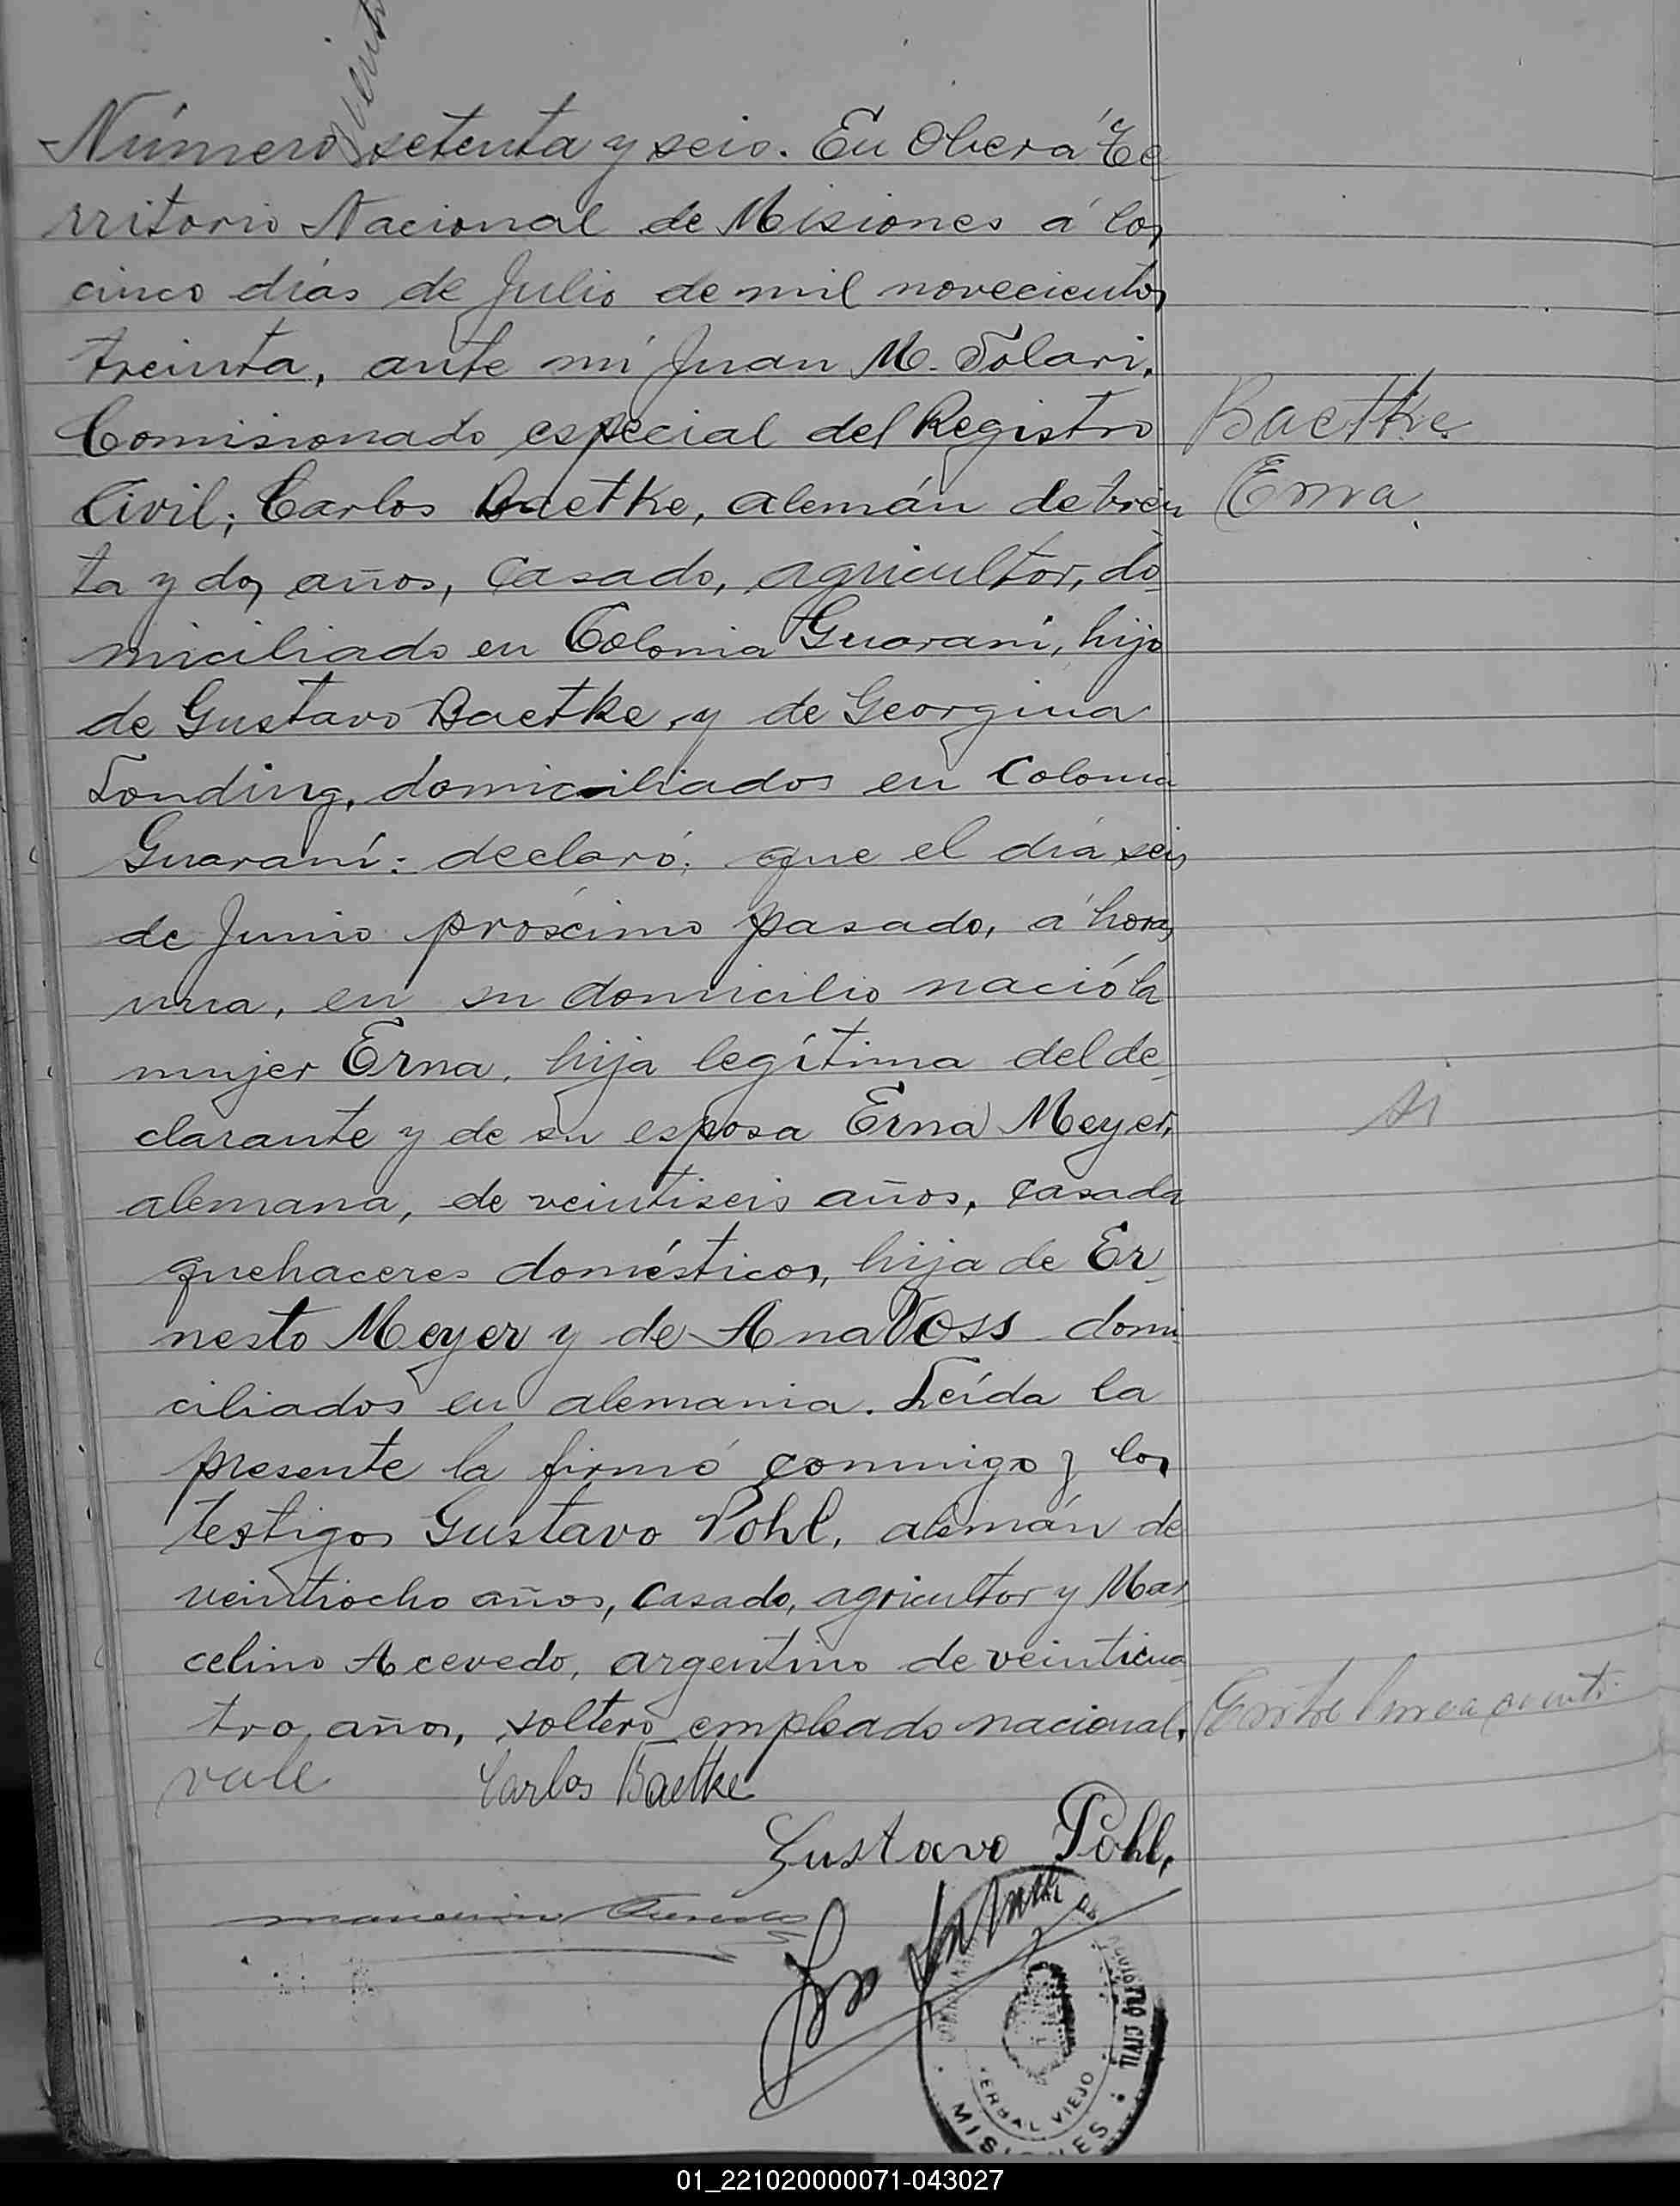 Número setenta y seis. En Oberá Te
rritorio Nacional de Misiones á los
cinco días de Julio de mil novecientos
treinta, ante mí Juan M. Solari,
Comisionado especial del Registro
Civil; Carlos Baetke, alemán de trein
ta y dos años, casado, agricultor, do
miciliado en Colonia Guaraní, hijo
de Gustavo Baetke, y de Georgina
Londing, domiciliados en Colonia
Guaraní: declaró; que el día seis
de Junio próximo pasado, á horas
una, en su domicilio nació la
mujer Erna, hija legítima del de
clarante y de su esposa Erna Meyer,
alemana, de veintiseis años, casada
quehaceres domésticos, hija de Er
nesto Meyer y de Ana Voss domi
ciliados en alemania. Leída la
presente la firmó conmigo y los
testigos Gustavo Pohl, alemán de
veintiocho años, casado, agricultor y Mar
celino Acevedo, argentino de veinticua
tro años, soltero empleado nacional.
vale
Baetke
Erna
si
Carlos Baetke
Gustavo Pohl.
REGISTRO CIVIL
YERBAL VIEJO
MISIONES
01_221020000071-043027